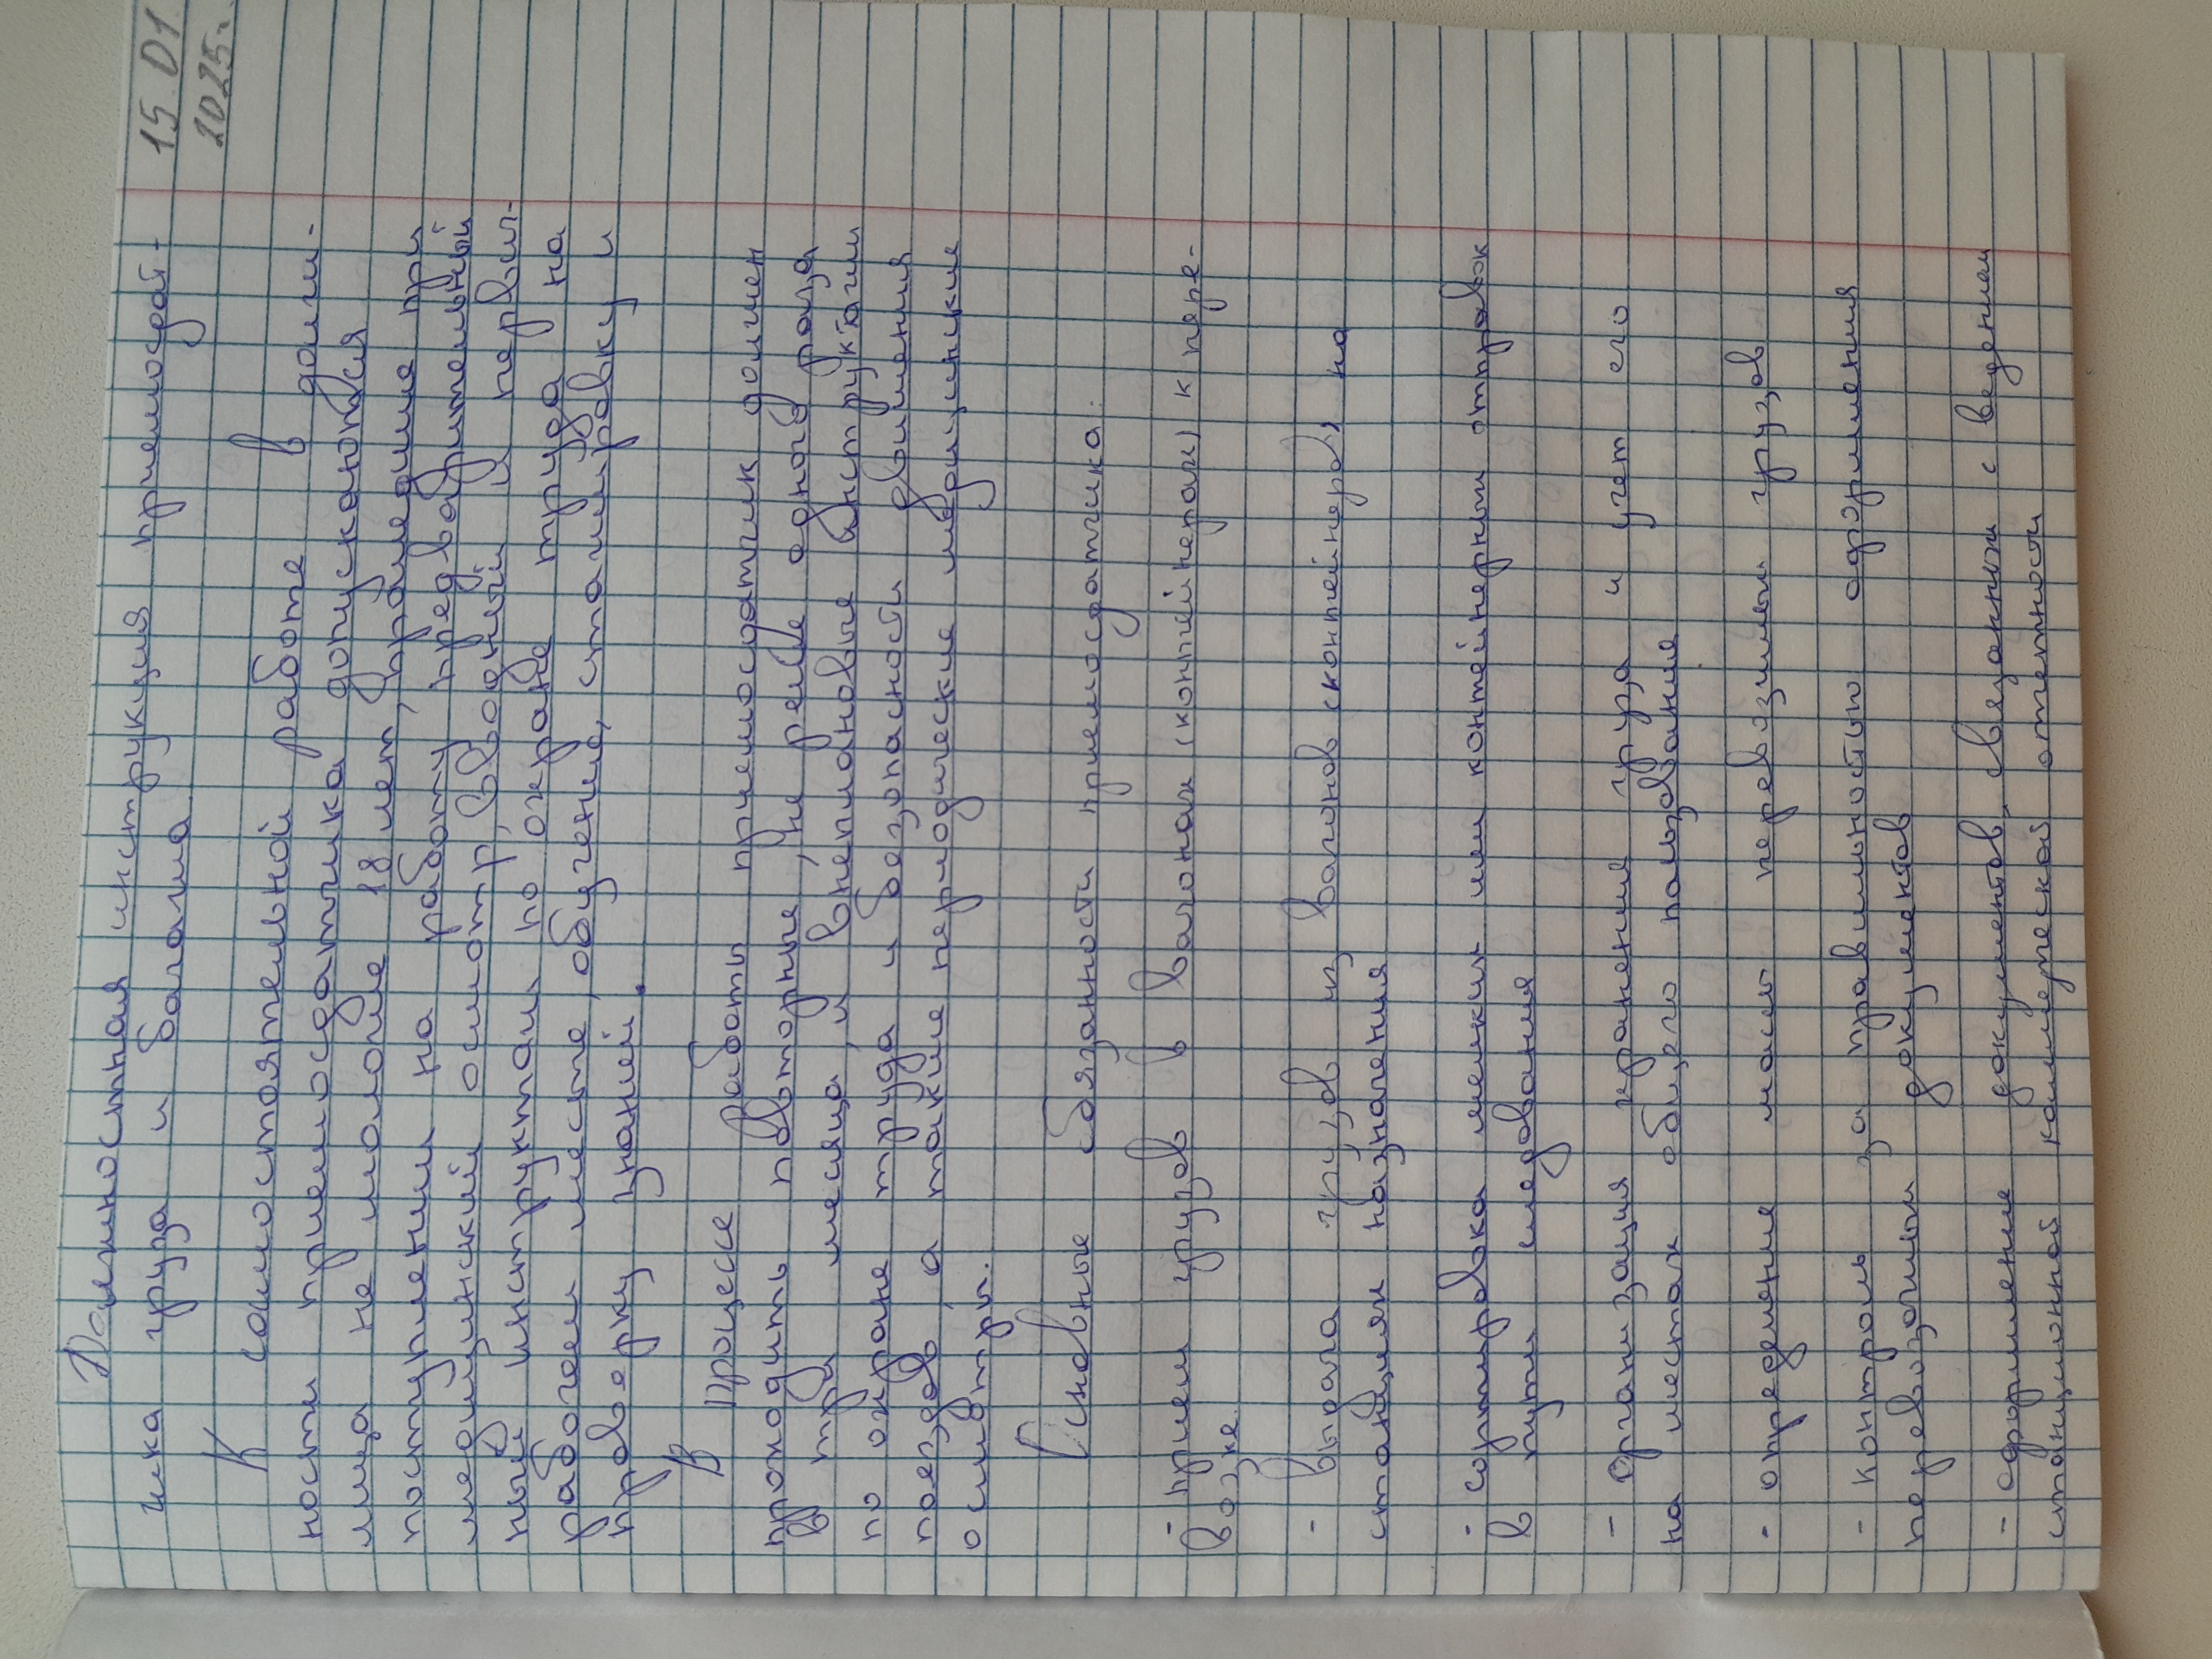 15.01.
2025г.
Должностная инструкция приемосдат-
чика груза и багажа.
К самостоятельной работе в долж-
ности приемосдатчика допускаются
лица не моложе 18 лет, прошедшие при
поступлении на работу предварительный
медицинский осмотр, вводный и первич-
ный инструктаж по охране труда на
рабочем месте, обучение, стажировку и
проверку знаний.
В процессе работы приемосдатчик должен
проходить повторные, не реже одного раза
в три месяца, и внеплановые инструктажи
по охране труда и безопасности движения
поездов, а также периодические медицинские
осмотры.
Основные обязанности приемосдатчика:
- прием грузов в вагонах (контейнерах) к пере-
возке.
- выдача грузов из вагонов (контейнеров) на
станциях назначения
- сортировка мелких или контейнерных отправок
в пути следования
- Организация хранения груза и учет его
на местах общего пользования
- определение масы перевозимых грузов
- контроль за правильностью оформления
перевозочных документов
- оформление документов, связанных с ведением
станционной коммерческой отчетности